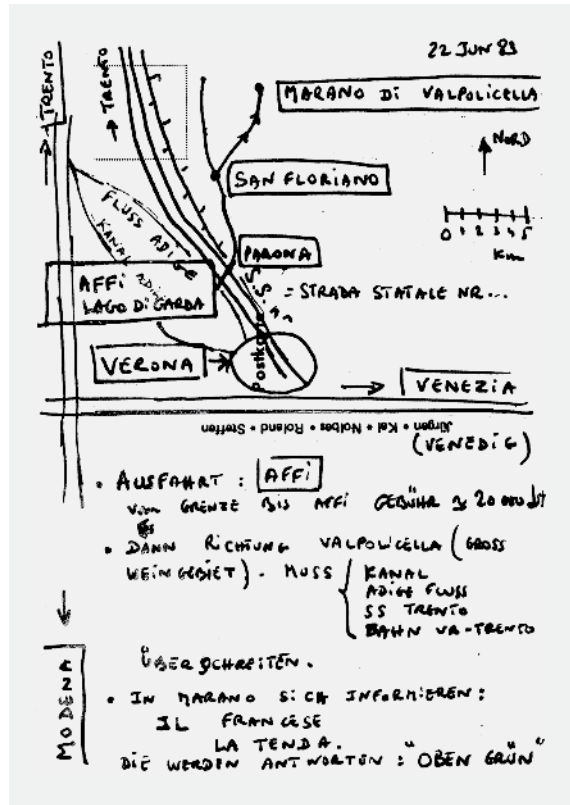 22 JUN 83
TRENTO
→ TRENTO
MARANO DI VALPOLICELLA
NORD
SAN FLORIANO
0 1 2 3 4 5
Km
FLUSS ADIGE
KANAL ADIGE
PARONA
AFFI
LAGO DI GARDA
S.S.
= STRADA STATALE NR...
Postkarte
VERONA
→ VENEZIA
Jürgen • Kai • Nolbas • Roland • Steffen
(VENEDIG)
• AUSFAHRT : AFFI
VON GRENZE BIS AFFI GEBÜHR 20
• DANN RICHTUNG VALPOLICELLA (GROSS
WEINGEBIET). MUSS { KANAL
ADIGE FLUSS
SS TRENTO
BAHN VR-TRENTO
ÜBERSCHREITEN.
MODENA
• IN MARANO SICH INFORMIEREN :
IL FRANCESE
LA TENDA.
DIE WERDEN ANTWORTEN : "OBEN GRÜN"